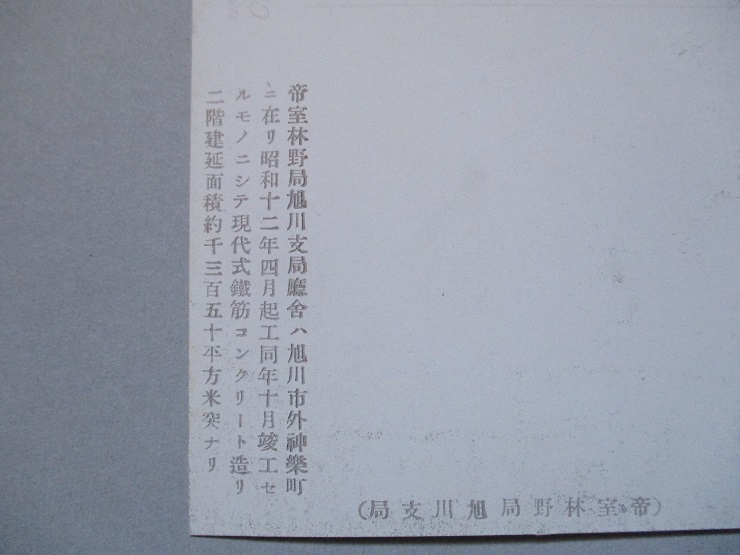 帝室林野局旭川支局廳舍ハ旭川市外神樂町
ニ在リ昭和十二年四月起工同年十月竣工セ
ルモノニシテ現代式鐵筋コンクリート造リ
二階建延面積約千三百五十平方米突ナリ
(帝室林野局旭川支局)